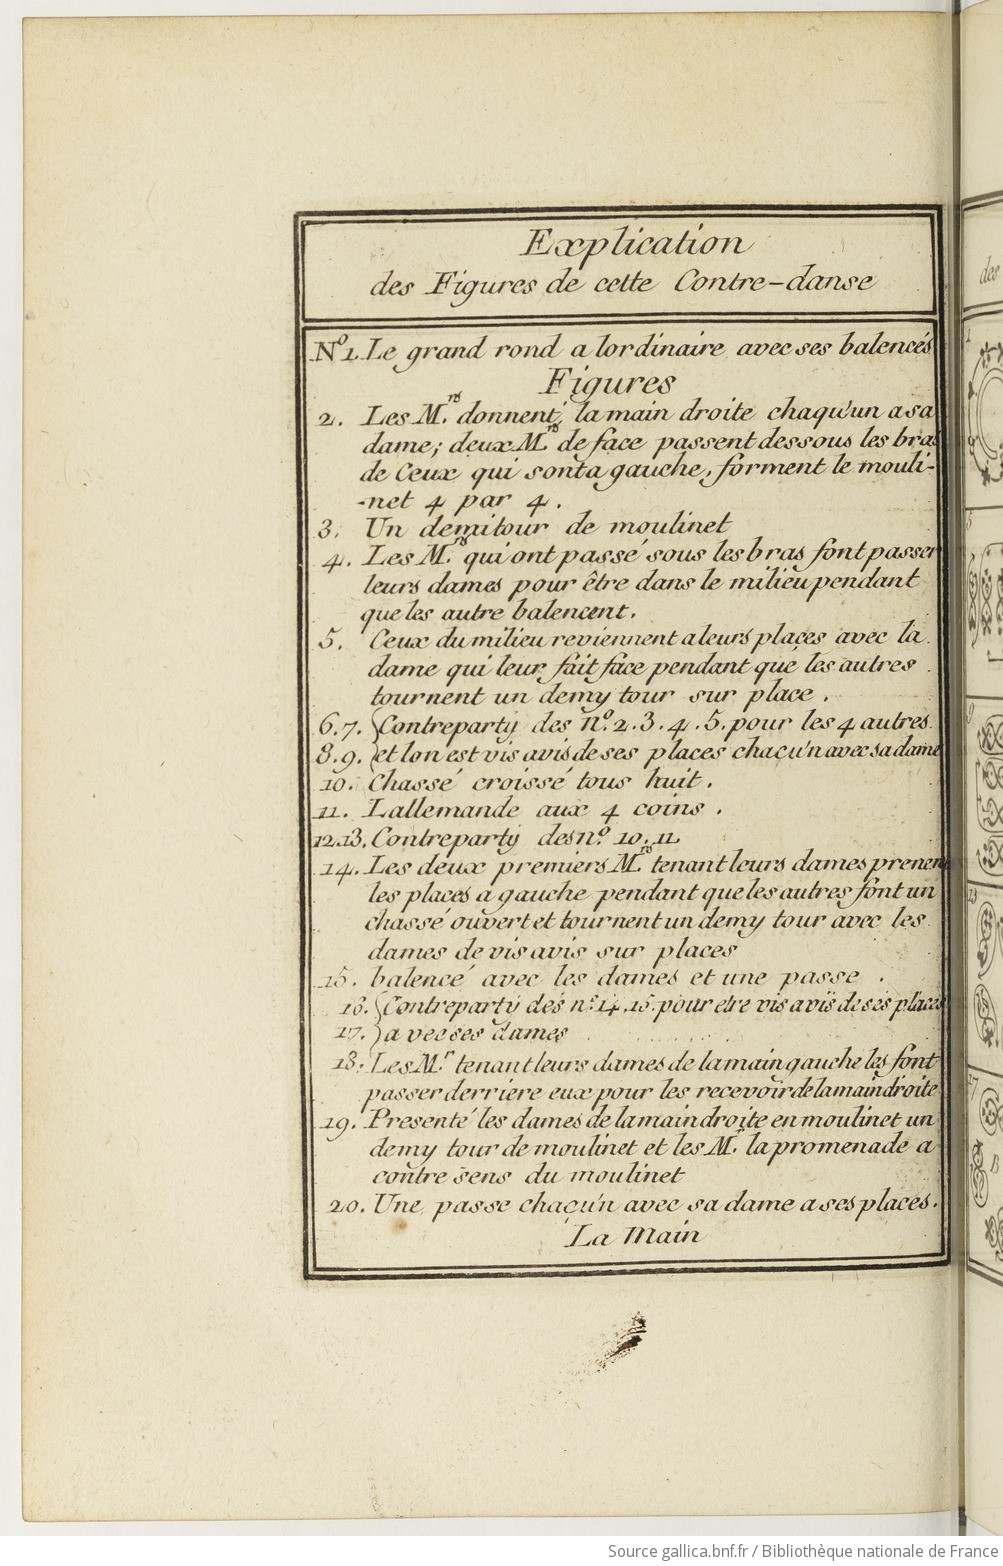 Explication
des Figures de cette Contre-danse
Nº1. Le grand rond a lordinaire avec ses balencés
Figures
2. Les M.rs donnent la main droite chaqu'un a sa
dame; deux M.rs de face passent dessous les bras
de Ceux qui sont a gauche, forment le mouli-
-net 4 par 4.
3. Un demi tour de moulinet
4. Les M.rs qui ont passé sous les bras font passer
leurs dames pour être dans le milieu pendant
que les autre balencent.
5. Ceux du milieu reviennent a leurs places avec la
dame qui leur fait face pendant que les autres
tournent un demy tour sur place.
6.7. Contreparty des nº. 2.3.4.5. pour les 4 autres.
8.9. et lon est vis avis de ses places chacu'n avec sa dame
10. Chassé croissé tous huit.
11. Lallemande aux 4 coins.
12.13. Contreparty des nº 10.11
14. Les deux premiers M.rs tenant leurs dames prenent
les places a gauche pendant que les autres font un
chassé ouvert et tournent un demy tour avec les
dames de vis avis sur places
15. balencé avec les dames et une passe.
16. Contreparty des nº 14.15. pour etre vis a vis de ses places
17. avec ses dames
18. Les M.r tenant leurs dames de la main gauche les font
passer derriere eux pour les recevoir de la main droite
19. Presenté les dames de la main droite en moulinet un
demy tour de moulinet et les M.rs la promenade a
contre sens du moulinet
20. Une passe chacu'n avec sa dame a ses places.
La Main
des
Source gallica.bnf.fr / Bibliothèque nationale de France